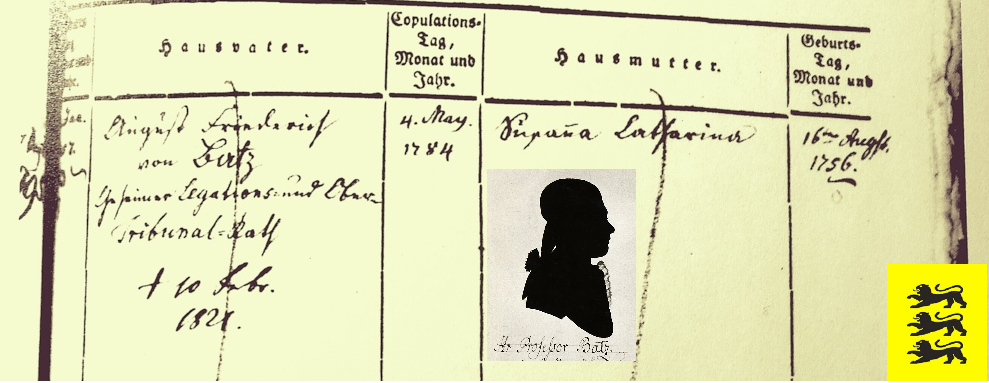 Hausvater.
Copulations-
Tag,
Monat und
Jahr.
Hausmutter.
Geburts-
Tag,
Monat und
Jahr.
August Friederich
von Batz
Geheimer Legations- und Ober-
Tribunal-Rath
† 10 Febr.
1821.
4. May.
1784
Susaña Catharina
16ten Augst.
1756.
Hr Professor Batz